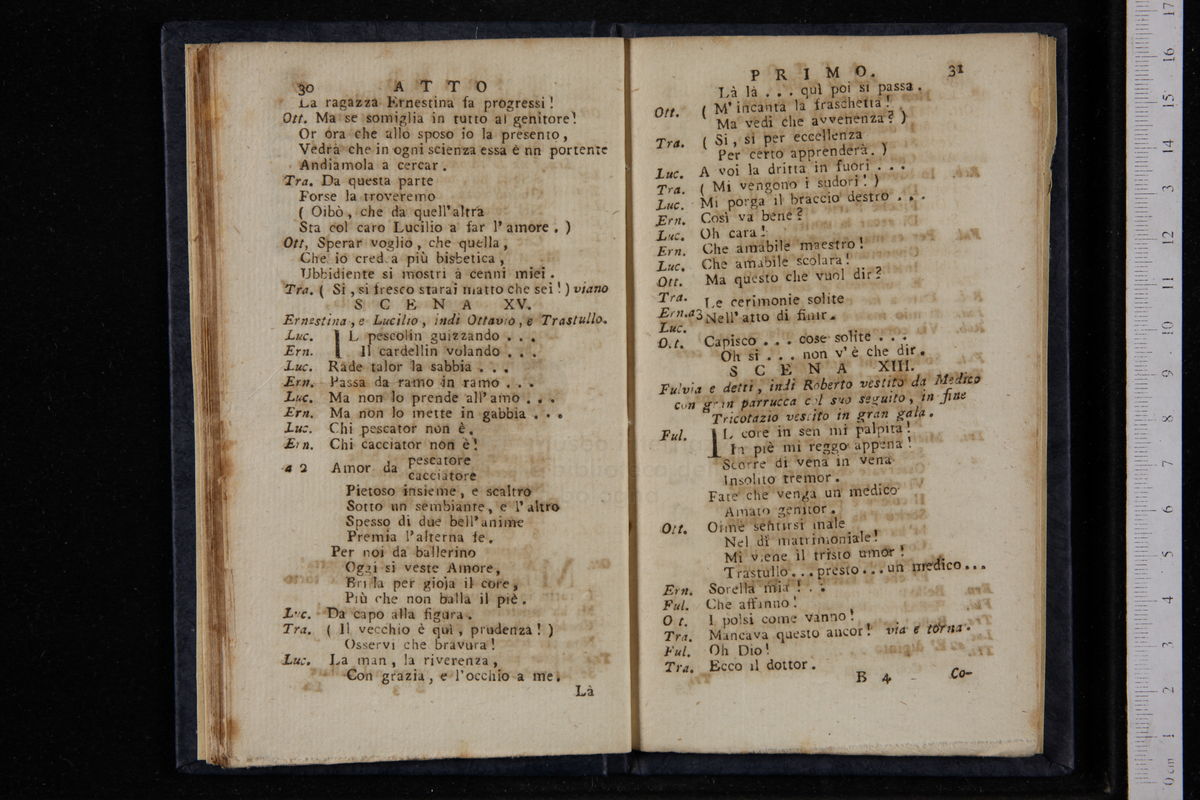 30 ATTO
La ragazza Ernestina fa progressi!
Ott. Ma se somiglia in tutto al genitore!
Or ora che allo sposo io la presento,
Vedrà che in ogni scienza essa è nn portente
Andiamola a cercar.
Tra. Da questa parte
Forse la troveremo
( Oibò, che da quell'altra
Sta col caro Lucilio a far l'amore. )
Ott, Sperar voglio, che quella,
Che io cred.a più bisbetica,
Ubbidiente si mostri a cenni miei.
Tra. ( Si, si fresco starai matto che sei! ) viano
SCENA XV.
Ernestina, e Lucilio, indi Ottavio, e Trastullo.
Luc. IL pescolin guizzando . . .
Ern. Il cardellin volando . . .
Luc. Rade talor la sabbia . . .
Ern. Passa da ramo in ramo . . .
Luc. Ma non lo prende all'amo . . .
Ern. Ma non lo mette in gabbia . . .
Luc. Chi pescator non è.
Ern. Chi cacciator non è!
a 2 Amor da pescatore
cacciatore
Pietoso insieme, e scaltro
Sotto un sembiante, e l'altro
Spesso di due bell'anime
Premia l'alterna fe.
Per noi da ballerino
Oggi si veste Amore,
Brilla per gioja il core,
Più che non balla il piè.
Luc. Da capo alla figura.
Tra. ( Il vecchio è quì, prudenza! )
Osservi che bravura!
Luc. La man, la riverenza,
Con grazia, e l'occhio a me.
Là
PRIMO. 31
Là là . . . quì poi si passa.
Ott. ( M'incanta la fraschetta!
Ma vedi che avvenenza? )
Tra. ( Si, si per eccellenza
Per certo apprenderà. )
Luc. A voi la dritta in fuori . . .
Tra. ( Mi vengono i sudori! )
Luc. Mi porga il braccio destro . . .
Ern. Così va bene?
Luc. Oh cara!
Ern. Che amabile maestro!
Luc. Che amabile scolara!
Ott. Ma questo che vuol dir?
Tra. Le cerimonie solite
Ern. a3 Nell'atto di finir.
Luc.
O.t. Capisco . . . cose solite . . .
Oh si . . . non v'è che dir.
SCENA XIII.
Fulvia e detti, indi Roberto vestito da Medico
con gran parrucca col suo seguito, in fine
Tricotazio vestito in gran gala.
Ful. IL core in sen mi palpita!
In piè mi reggo appena!
Scorre di vena in vena
Insolito tremor.
Fate che venga un medico
Amato genitor.
Ott. Oimè sentirsi male
Nel dì matrimoniale!
Mi viene il tristo umor!
Trastullo...presto...un medico...
Ern. Sorella mia! . .
Ful. Che affanno!
O t. I polsi come vanno!
Tra. Mancava questo ancor! via e torna.
Ful. Oh Dio!
Tra. Ecco il dottor.
B 4 Co-